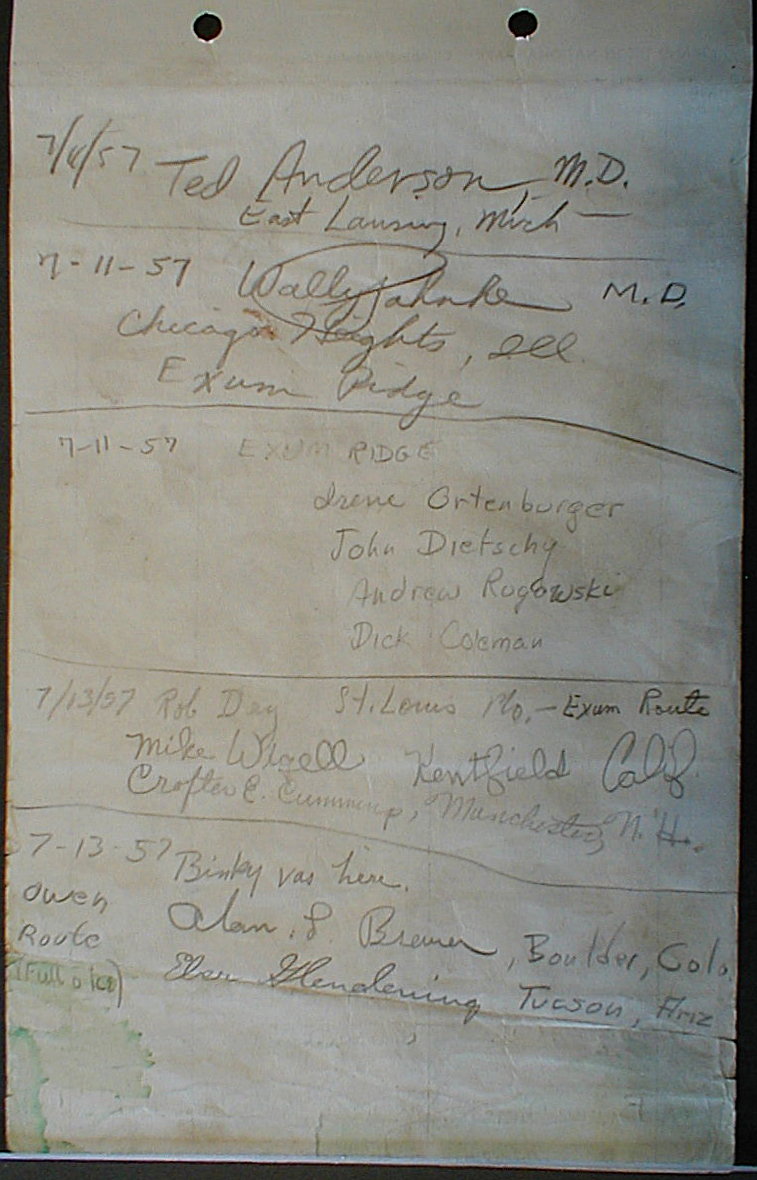 7/11/57 Ted Anderson, M.D.
East Lansing, Mich
7-11-57 Wally Jahnke M.D.
Chicago Heights, Ill.
Exum Ridge
7-11-57 EXUM RIDGE
Irene Ortenburger
John Dietschy
Andrew Rogowski
Dick Coleman
7/13/57 Rob Day St. Louis Mo, - Exum Route
Mike Wigell Kentfield Calif
E. Cummings, Manchester, N.H.
7-13-57 Binky vas here.
Owen
Route
(Full o ice)
Alan. Bremer, Boulder, Colo.
Glendening Tucson, Ariz